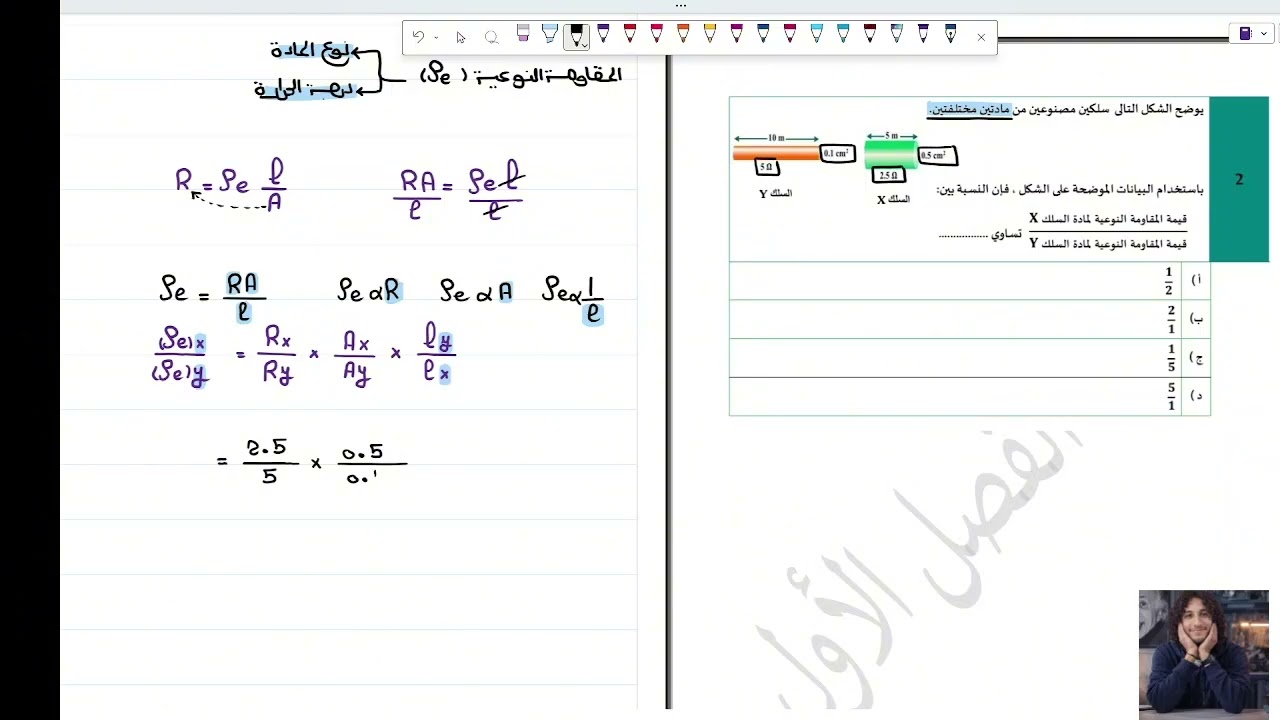 نوع المادة
المقاومة النوعية (ρe)
درجة الحرارة
R = ρe l/A
RA/l = ρe l/l
ρe = RA/l ρe α R ρe α A ρe α 1/l
(ρe)x/(ρe)y = Rx/Ry × Ax/Ay × ly/lx
= 2.5/5 × 0.5/0.1
2
يوضح الشكل التالى سلكين مصنوعين من مادتين مختلفتين.
10 m 5 m
0.1 cm² 0.5 cm²
5 Ω 2.5 Ω
السلك Y السلك X
باستخدام البيانات الموضحة على الشكل ، فإن النسبة بين:
قيمة المقاومة النوعية لمادة السلك X
تساوي .................
قيمة المقاومة النوعية لمادة السلك Y
أ) 1/2
ب) 2/1
ج) 1/5
د) 5/1
الفصل الأول